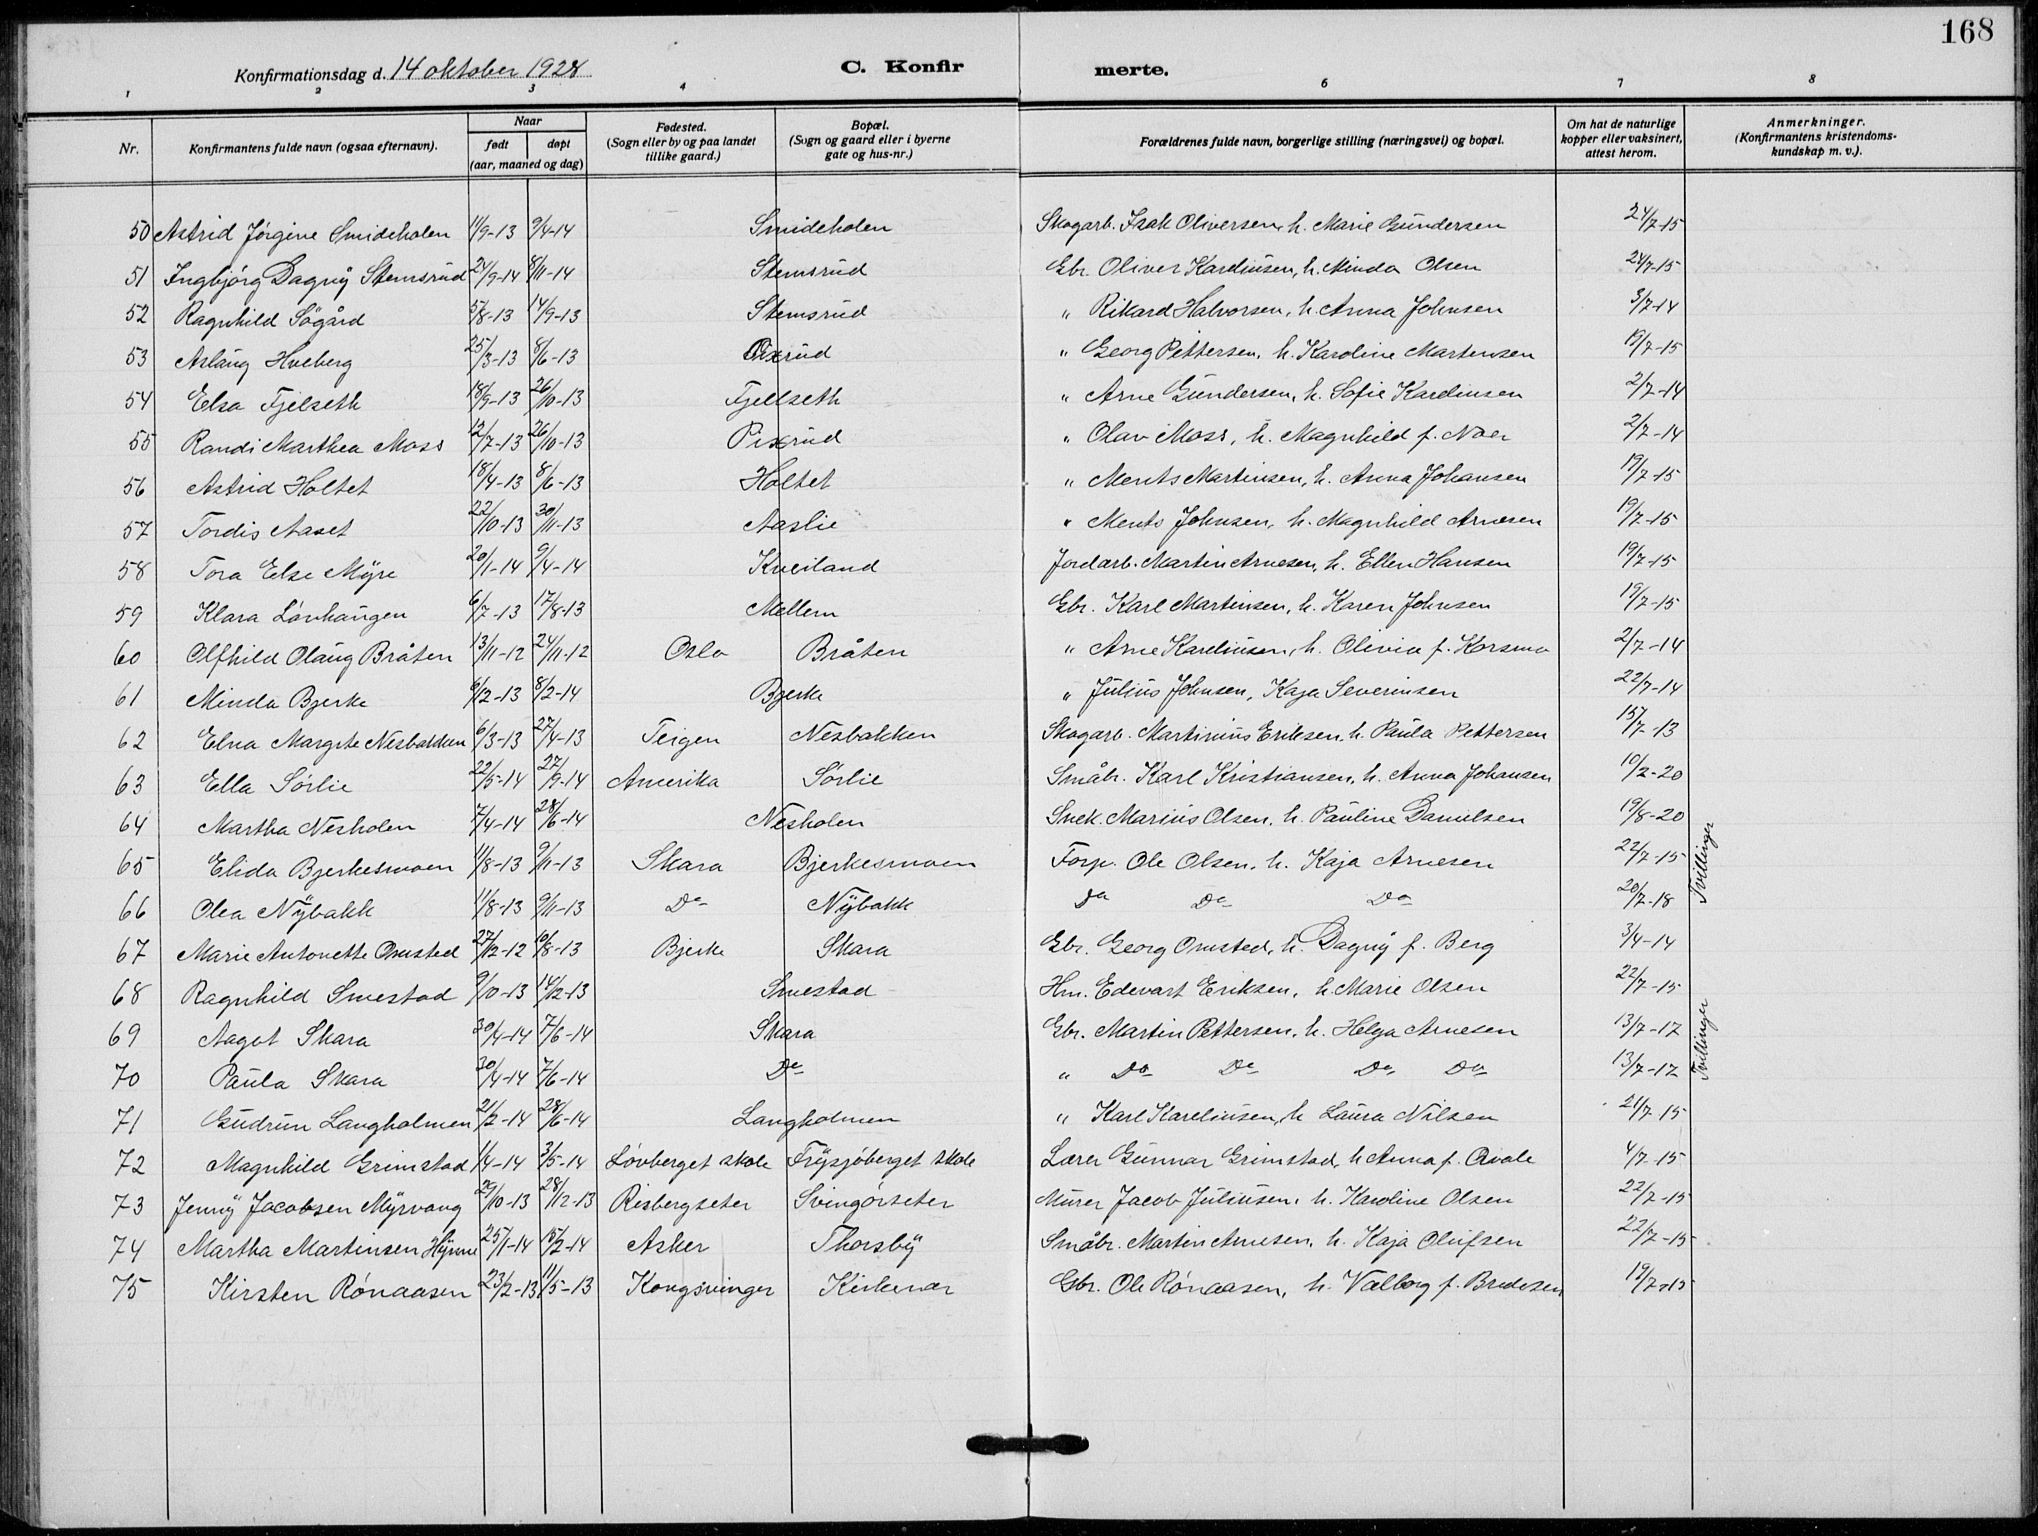 168
Konfirmationsdag d. 14 oktober 1928 C. Konfirmerte.
1 2 3 4 6 7 8
Nr. Konfirmantens fulde navn (ogsaa efternavn). Naar født døpt (aar, maaned og dag) Fødested. (Sogn eller by og paa landet tillike gaard.) Bopæl. (Sogn og gaard eller i byerne gate og hus-nr.) Forældrenes fulde navn, borgerlige stilling (næringsvei) og bopæl. Om hat de naturlige kopper eller vaksinert, attest herom. Anmerkninger. (Konfirmantens kristendoms-kundskap m. v.).
50 Astrid Jørgine Smideholen 11/9-13 9/4-14 Smideholen Skogarb. Isak Oliversen, h. Marie Gundersen 24/7-15
51 Ingbjørg Dagny Stemsrud 24/9-14 8/11-14 Stemsrud Gbr. Oliver Kareliusen, h. Minda Olsen 24/7-15
52 Ragnhild Sögård 5/8-13 14/9-13 Stemsrud " Rikard Halvorsen, h. Anna Johnsen 3/7-14
53 Aslaug Hveberg 25/3-13 8/6-13 Pixrud " Georg Pettersen, h. Karoline Martinsen 19/7-15
54 Elsa Fjelseth 18/9-13 26/10-13 Fjellseth " Arne Gundersen, h. Sofie Kareliusen 2/7-14
55 Randi Marthea Moss 12/7-13 26/10-13 Pixrud " Olav Moss, h. Magnhild f. Noer 2/7-14
56 Astrid Holtet 18/4-13 8/6-13 Holtet " Ments Martinsen, h. Anna Johansen 19/7-15
57 Tordis Aaset 22/10-13 30/11-13 Aaslie " Ments Johnsen, h. Magnhild Arnesen 19/7-15
58 Tora Else Myre 20/1-14 9/4-14 Kveiland Jordarb. Martin Arnesen, h. Ellen Hansen 19/7-15
59 Klara Løvhaugen 6/7-13 17/8-13 Mellem Gbr. Karl Martinsen, h. Karen Johnsen 19/7-15
60 Olfhild Olaug Bråten 13/11-12 24/11-12 Oslo Bråten " Arne Kareliusen, h. Olivia f. Korsmo 2/7-14
61 Minda Bjerke 6/12-13 8/2-14 Bjerke " Julius Johnsen, Kaja Severinsen 22/7-14
62 Elna Margrte Nesbakken 6/3-13 27/4-13 Teigen Nesbakken Skogarb. Martinius Eriksen h. Paula Pettersen 15/7-13
63 Ella Sørlie 22/5-14 27/9-14 Amerika Sørlie Småbr. Karl Kristiansen, h. Anna Johansen 10/2-20
64 Martha Nesholen 7/4-14 28/6-14 Nesholen Snek. Marius Olsen, h. Pauline Danielsen 19/8-20
65 Elida Bjerkesmoen 11/8-13 9/11-13 Skara Bjerkesmoen Forp. Ole Olsen, h. Kaja Arnesen 22/7-15 Tvillinger
66 Olea Nybakk 11/8-13 9/11-13 Do Nybakk Do Do Do 20/7-18
67 Marie Antonette Onsted 27/12-12 10/8-13 Bjerke Skara Gbr. Georg Onsted, h. Dagny f. Berg 3/4-14
68 Ragnhild Smestad 9/10-13 14/12-13 Smestad Hm. Edevart Eriksen, h. Marie Olsen 22/7-15
69 Aagot Skara 30/4-14 7/6-14 Skara Gbr. Martin Pettersen, h. Helga Arnesen 13/7-17 Tvillinger
70 Paula Skara 30/4-14 7/6-14 Do " Do Do Do Do 13/7-17
71 Gudrun Langholmen 21/2-14 28/6-14 Langholmen " Karl Kareliusen, h Laura Nilsen 21/7-15
72 Magnhild Grimstad 1/4-14 3/5-14 Løvberget skole Frysjøberget skole Lærer Gunnar Grimstad, h Anna f. Qvale 4/7-15
73 Jenny Jacobsen Myrvang 29/10-13 28/12-13 Risbergseter Svingørseter Murer Jacob Juliusen, h. Karoline Olsen 22/7-15
74 Martha Martinsen Hynne 25/1-14 15/2-14 Asker Thorsby Småbr. Martin Arnesen, h. Kaja Olufsen 22/7-15
75 Kirsten Rønaasen 23/2-13 11/5-13 Kongsvinger Kirkenær Gbr. Ole Rønaasen, h. Valborg f. Bredesen 19/7-15